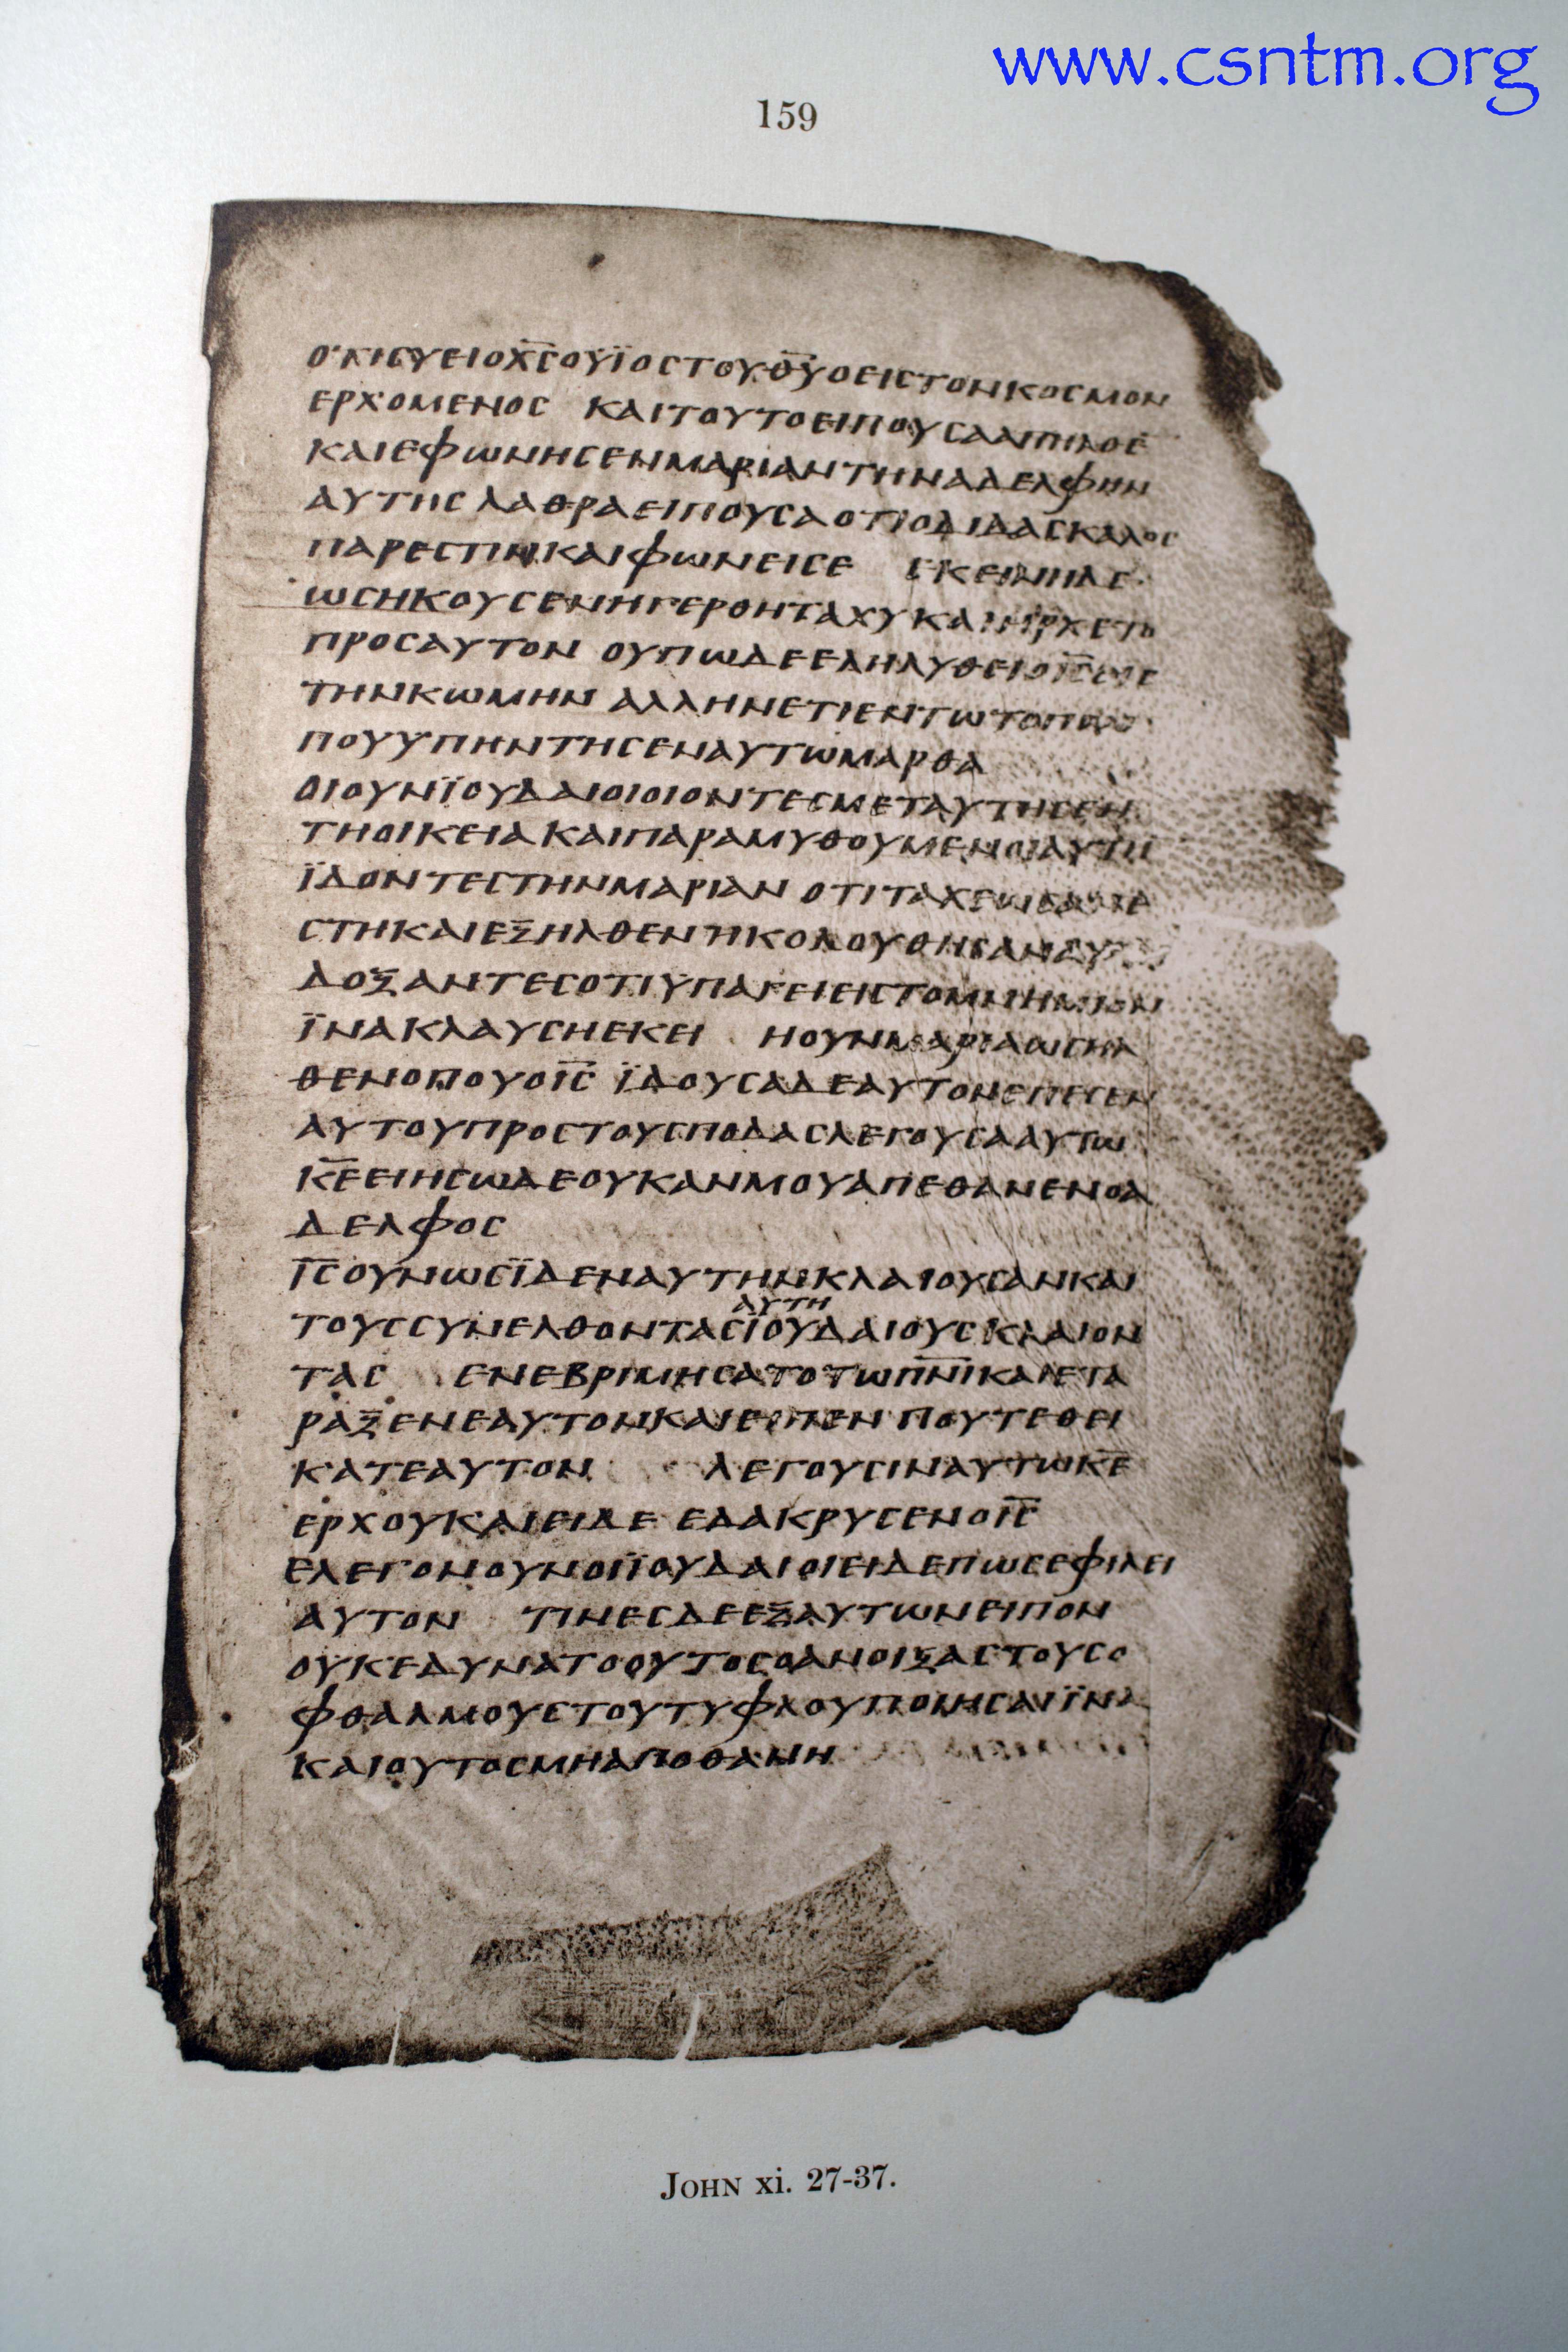 www.csntm.org
159
ΟΤΙ CΥ ΕΙ Ο Χ̅C̅ Ο ΥΪΟC ΤΟΥ Θ̅Υ̅ Ο ΕΙC ΤΟΝ ΚΟCΜΟΝ
ΕΡΧΟΜΕΝΟC ΚΑΙ ΤΟΥΤΟ ΕΙΠΟΥCΑ ΑΠΗΛΘΕ
ΚΑΙ ΕΦΩΝΗCΕΝ ΜΑΡΙΑΝ ΤΗΝ ΑΔΕΛΦΗΝ
ΑΥΤΗC ΛΑΘΡΑ ΕΙΠΟΥCΑ ΟΤΙ Ο ΔΙΔΑCΚΑΛΟC
ΠΑΡΕCΤΙΝ ΚΑΙ ΦΩΝΕΙ CΕ ΕΚΕΙΝΗ ΔΕ
ΩC ΗΚΟΥCΕΝ ΗΓΕΡΘΗ ΤΑΧΥ ΚΑΙ ΗΡΧΕΤΟ
ΠΡΟC ΑΥΤΟΝ ΟΥΠΩ ΔΕ ΕΛΗΛΥΘΕΙ Ο Ι̅C̅ ΕΙC
ΤΗΝ ΚΩΜΗΝ ΑΛΛ ΗΝ ΕΤΙ ΕΝ ΤΩ ΤΟΠΩ Ο
ΠΟΥ ΥΠΗΝΤΗCΕΝ ΑΥΤΩ ΜΑΡΘΑ
ΟΙ ΟΥΝ ΪΟΥΔΑΙΟΙ ΟΙ ΟΝΤΕC ΜΕΤ ΑΥΤΗC ΕΝ
ΤΗ ΟΙΚΕΙΑ ΚΑΙ ΠΑΡΑΜΥΘΟΥΜΕΝΟΙ ΑΥΤΗ
ΪΔΟΝΤΕC ΤΗΝ ΜΑΡΙΑΝ ΟΤΙ ΤΑΧΕΩC ΑΝΕ
CΤΗ ΚΑΙ ΕΞΗΛΘΕΝ ΗΚΟΛΟΥΘΗCΑΝ ΑΥ
ΔΟΞΑΝΤΕC ΟΤΙ ΫΠΑΓΕΙ ΕΙC ΤΟ ΜΝΗΜΙΟΝ
ΪΝΑ ΚΛΑΥCΗ ΕΚΕΙ Η ΟΥΝ ΜΑΡΙΑ ΩC ΗΛ
ΘΕΝ ΟΠΟΥ Ο Ι̅C̅ ΪΔΟΥCΑ ΔΕ ΑΥΤΟΝ ΕΠΕCΕΝ
ΑΥΤΟΥ ΠΡΟC ΤΟΥC ΠΟΔΑC ΛΕΓΟΥCΑ ΑΥΤΩ
Κ̅Ε̅ ΕΙ ΗC ΩΔΕ ΟΥΚ ΑΝ ΜΟΥ ΑΠΕΘΑΝΕΝ Ο Α
ΔΕΛΦΟC
Ι̅C̅ ΟΥΝ ΩC ΪΔΕΝ ΑΥΤΗΝ ΚΛΑΙΟΥCΑΝ ΚΑΙ
ΑΥΤΗ
ΤΟΥC CΥΝΕΛΘΟΝΤΑC ΪΟΥΔΑΙΟΥC ΚΛΑΙΟΝ
ΤΑC ΕΝΕΒΡΙΜΗCΑΤΟ ΤΩ Π̅Ν̅Ι̅ ΚΑΙ ΕΤΑ
ΡΑΞΕΝ ΕΑΥΤΟΝ ΚΑΙ ΕΙΠΕΝ ΠΟΥ ΤΕΘΕΙ
ΚΑΤΕ ΑΥΤΟΝ ΛΕΓΟΥCΙΝ ΑΥΤΩ Κ̅Ε̅
ΕΡΧΟΥ ΚΑΙ ΕΙΔΕ ΕΔΑΚΡΥCΕΝ Ο Ι̅C̅
ΕΛΕΓΟΝ ΟΥΝ ΟΙ ΪΟΥΔΑΙΟΙ ΕΙΔΕ ΠΩC ΕΦΙΛΕΙ
ΑΥΤΟΝ ΤΙΝΕC ΔΕ ΕΞ ΑΥΤΩΝ ΕΙΠΟΝ
ΟΥΚ ΕΔΥΝΑΤΟ ΟΥΤΟC Ο ΑΝΟΙΞΑC ΤΟΥC Ο
ΦΘΑΛΜΟΥC ΤΟΥ ΤΥΦΛΟΥ ΠΟΙΗCΑΙ ΪΝΑ
ΚΑΙ ΟΥΤΟC ΜΗ ΑΠΟΘΑΝΗ
JOHN xi. 27-37.